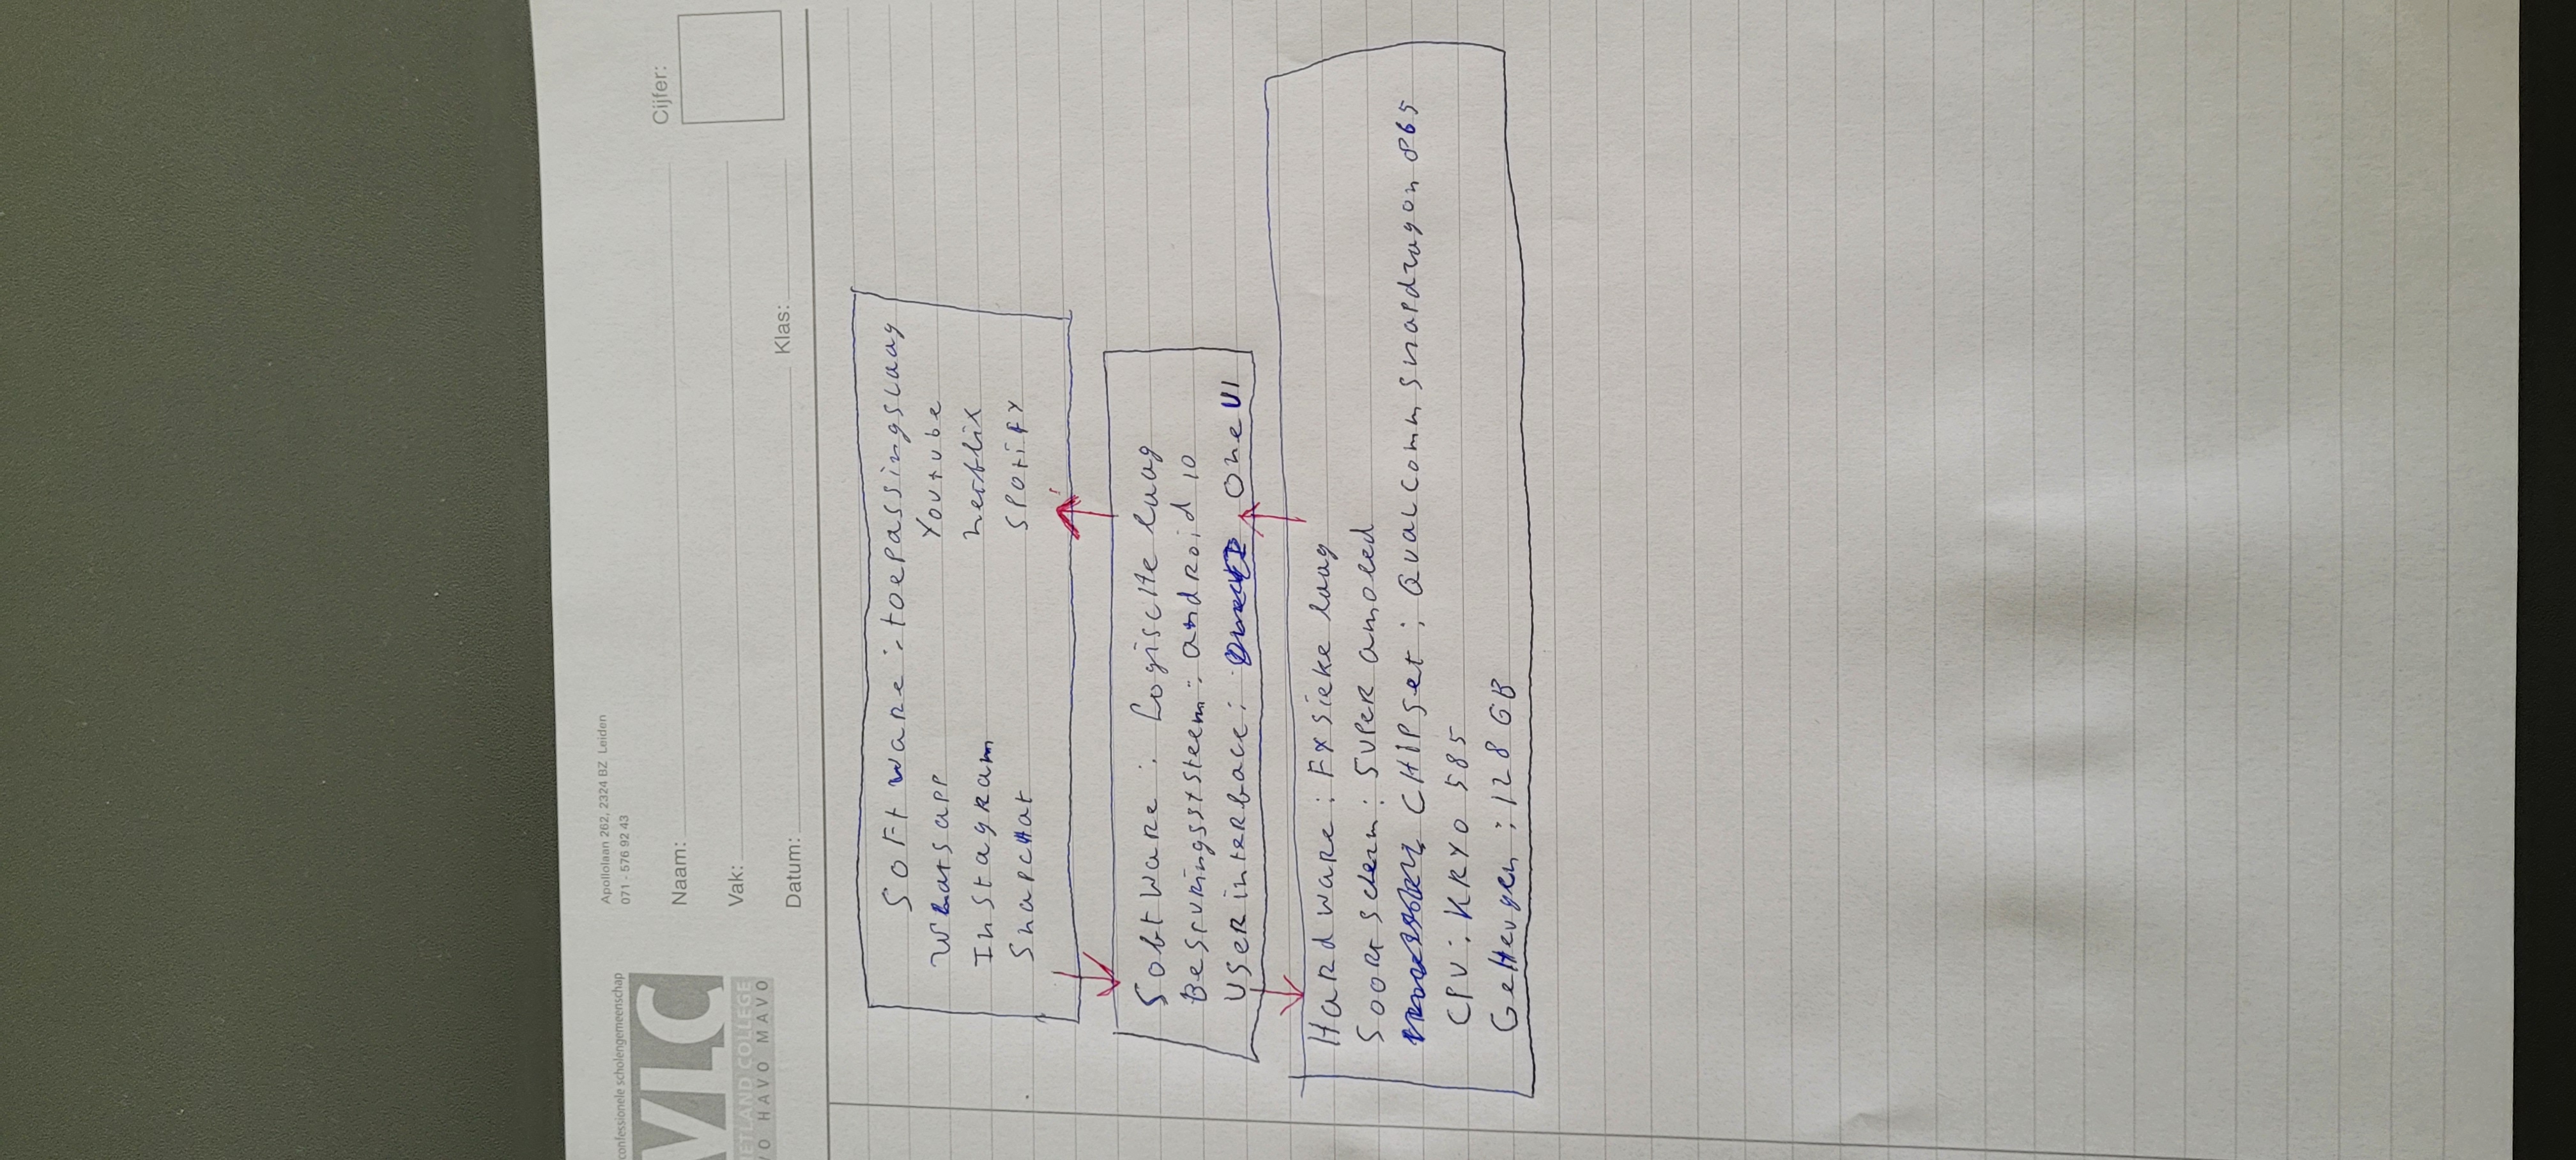 confessionele scholengemeenschap
VLC
ETLAND COLLEGE
VO HAVO MAVO
Apollolaan 262, 2324 BZ Leiden
071 - 576 92 43
Naam:
Vak:
Datum:
Klas:
Cijfer:
Software: toepassingslaag
Whatsapp Youtube
Instagram netflix
Snapchat Spotify
Software: Logische laag
Besturingssysteem: android 10
User interface: One UI
Hardware: Fysieke laag
Soort scherm: Super amoled
CHIPset: Qualcomm snapdragon 865
CPU: KRYO 585
Geheugen: 128 GB